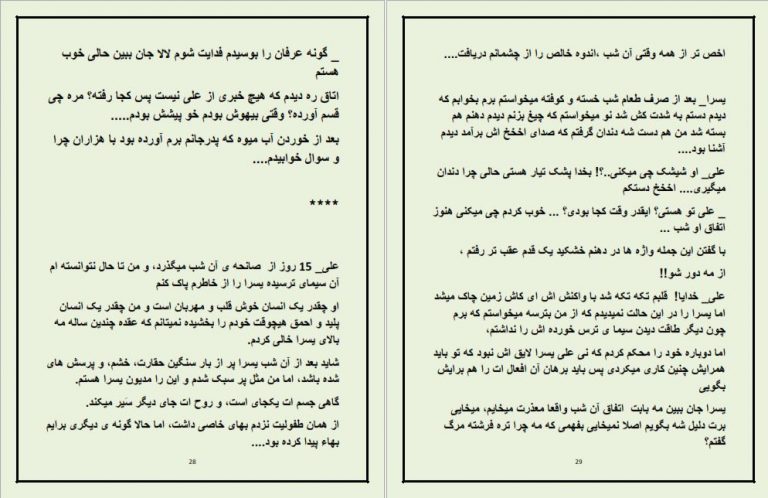 _ گونه عرفان را بوسیدم فدایت شوم لالا جان ببین حالی خوب
هستم
اتاق ره دیدم که هیچ خبری از علی نیست پس کجا رفته؟ مره چی
قسم آورده؟ وقتی بیهوش بودم خو پیشش بودم.....
بعد از خوردن آب میوه که پدرجانم برم آورده بود با هزاران چرا
و سوال خوابیدم....
****
علی_ 15 روز از صانحه ی آن شب میگذرد، و من تا حال نتوانسته ام
آن سیمای ترسیده یسرا را از خاطرم پاک کنم
او چقدر یک انسان خوش قلب و مهربان است و من چقدر یک انسان
پلید و احمق هیچوقت خودم را بخشیده نمیتانم که عقده چندین ساله مه
بالای یسرا خالی کردم.
شاید بعد از آن شب یسرا پر از بار سنگین حقارت، خشم، و پرسش های
شده باشد، اما من مثل پر سبک شدم و این را مدیون یسرا هستم.
گاهی جسم ات یکجای است، و روح ات جای دیگر سَیر میکند.
از همان طفولیت نزدم بهای خاصی داشت، اما حالا گونه ی دیگری برایم
بهاء پیدا کرده بود....
28
اخص تر از همه وقتی آن شب ،اندوه خالص را از چشمانم دریافت....
یسرا_ بعد از صرف طعام شب خسته و کوفته میخواستم برم بخوابم که
دیدم دستم به شدت کش شد نو میخواستم که چیغ بزنم دیدم دهنم هم
بسته شد من هم دست شه دندان گرفتم که صدای اخخخ اش برآمد دیدم
آشنا بود....
علی_ او شیشک چی میکنی..؟! بخدا پشک تیار هستی حالی چرا دندان
میگیری.... اخخخ دستکم
_ علی تو هستی؟ ایقدر وقت کجا بودی؟ ... خوب کردم چی میکنی هنوز
اتفاق او شب ...
با گفتن این جمله واژه ها در دهنم خشکید یک قدم عقب تر رفتم ،
از مه دور شو!!
علی_ خدایا! قلبم تکه تکه شد با واکنش اش ای کاش زمین چاک میشد
اما یسرا را در این حالت نمیدیدم که از من بترسه میخواستم که برم
چون دیگر طاقت دیدن سیما ی ترس خورده اش را نداشتم،
اما دوباره خود را محکم کردم که نی علی یسرا لایق اش نبود که تو باید
همرایش چنین کاری میکردی پس باید برهان آن افعال ات را هم برایش
بگویی
یسرا جان ببین مه بابت اتفاق آن شب واقعا معذرت میخایم، میخایی
برت دلیل شه بگویم اصلا نمیخایی بفهمی که مه چرا تره فرشته مرگ
گفتم؟
29